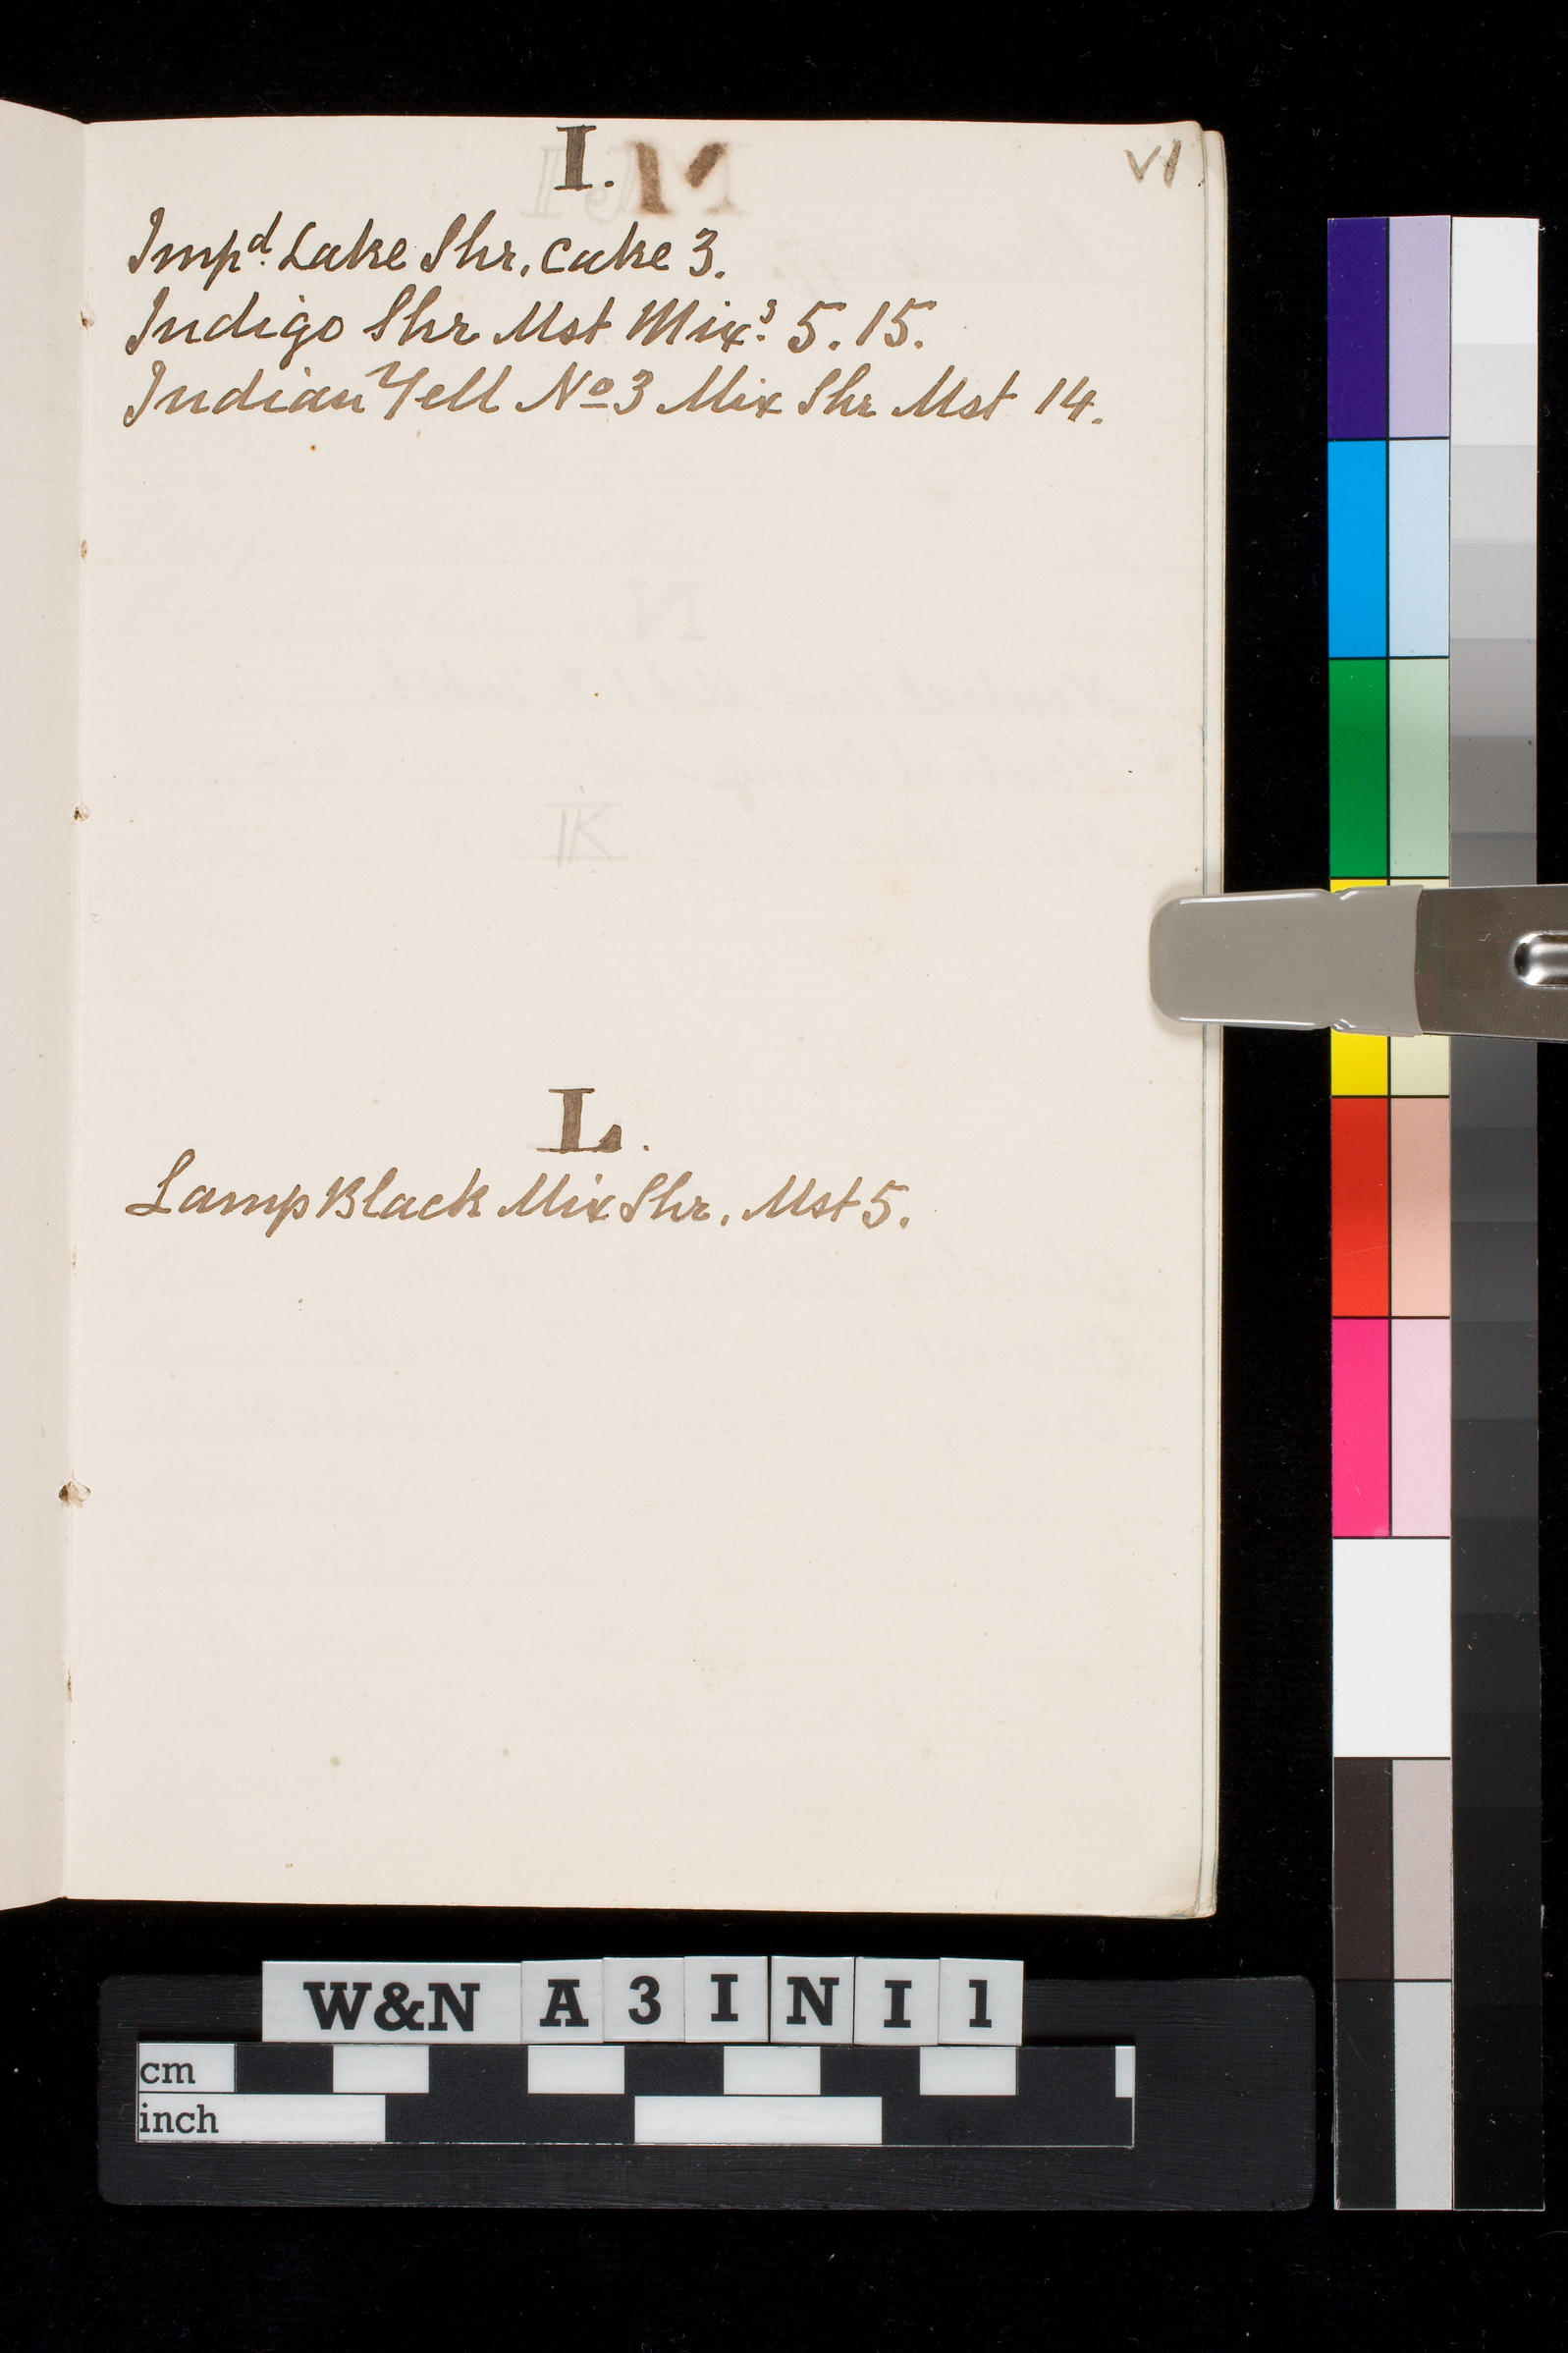 VI
I.
Imp^d. Lake Shr. Cake 3.
Indigo Shr Mst Mix^s. 5. 15.
Indian Yell No 3 Mix Shr Mst 14.
K
L.
Lamp Black Mix Shr. Mst 5.
W&N A 3 I N I 1
cm
inch